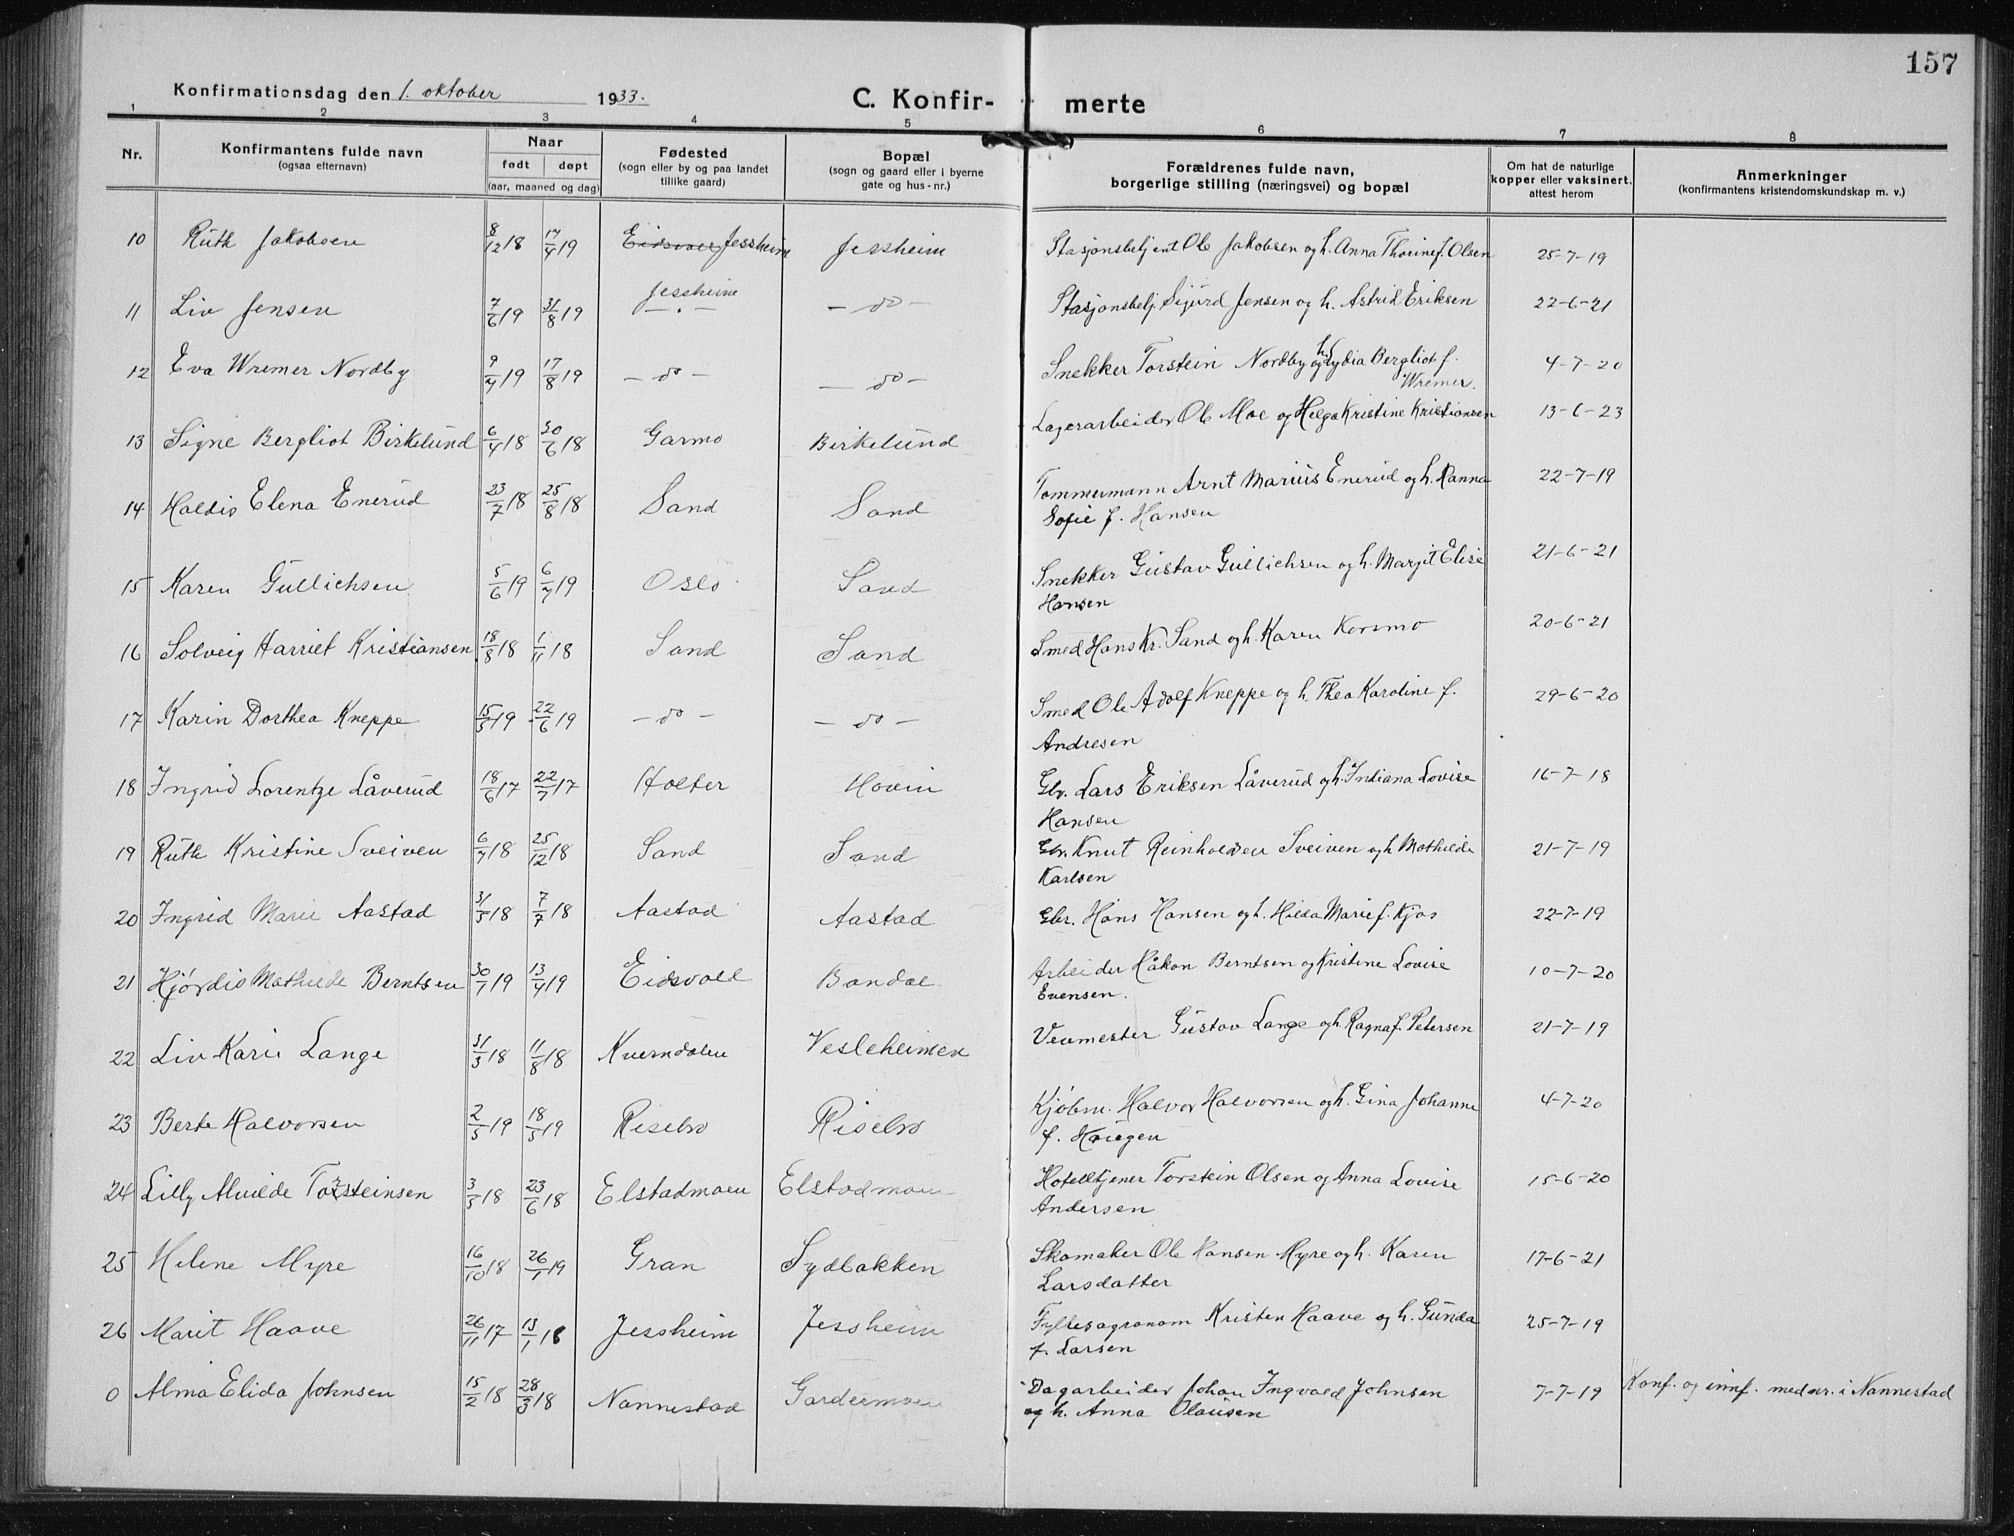 157
Konfirmationsdag den 1. oktober 1933.
C. Konfir- merte
1 2 3 4 5 6 7 8
Nr.
Konfirmantens fulde navn
(ogsaa efternavn)
Naar
født døpt
(aar, maaned og dag)
Fødested
(sogn eller by og paa landet
tillike gaard)
Bopæl
(sogn og gaard eller i byerne
gate og hus-nr.)
Forældrenes fulde navn,
borgerlige stilling (næringsvei) og bopæl
Om hat de naturlige
kopper eller vaksinert,
attest herom
Anmerkninger
(konfirmantens kristendomskundskap m. v.)
10 Ruth Jakobsen 8/12 18 17/4 19 Eidsvoll Jessheim Jessheim Stasjonsbetjent Ole Jakobsen og h. Anna Thorine f. Olsen 25-7-19
11 Liv Jensen 7/6 19 31/8 19 Jessheim — do — Stasjonsbetj. Sigurd Jensen og h. Astrid Eriksen 22-6-21
12 Eva Wremer Nordby 9/4 19 17/8 19 — do — — do — Snekker Torstein Nordby og h. Lydia Bergliot f.
Wremer. 4-7-20
13 Signe Bergliot Birkelund 6/4 18 30/6 18 Garmo Birkelund Lagerarbeider Ole Moe og Helga Kristine Kristiansen 13-6-23
14 Haldis Elena Enerud 23/7 18 25/8 18 Sand Sand Tommermann Arnt Marius Enerud og h. Hanna
Sofie f. Hansen 22-7-19
15 Karen Gullichsen 5/6 19 6/7 19 Oslo Sand Snekker Gustav Gullichsen og h. Margit Elise
Hansen 21-6-21
16 Solveig Harriet Kristiansen 18/8 18 1/11 18 Sand Sand Smed Hans Kr. Sand og h. Karen Korsmo 20-6-21
17 Karin Dorthea Kneppe 15/5 19 22/6 19 — do — — do — Smed Ole Adolf Kneppe og h. Thea Karoline f.
Andresen 29-6-20
18 Ingrid Lorentze Låverud 18/6 17 22/7 17 Holter Hovin Gbr. Lars Eriksen Låverud og h. Indiana Lovise
Hansen 16-7-18
19 Ruth Kristine Sveiven 6/7 18 25/12 18 Sand Sand Gbr. Knut Reinholdsen Sveiven og h Mathilde
Karlsen 21-7-19
20 Ingrid Marie Aastad 31/5 18 7/7 18 Aastad Aastad Gbr. Hans Hansen og h. Hilda Marie f. Kjos 22-7-19
21 Hjørdis Mathilde Berntsen 30/1 19 13/4 19 Eidsvoll Bondal Arbeider Håkon Berntsen og Kristine Lovise
Evensen. 10-7-20
22 Liv Karie Lange 31/3 18 11/8 18 Kverndalen Vesleheimen Veivmester Gustav Lange og h. Ragna f. Petersen 21-7-19
23 Berte Halvorsen 2/5 19 18/5 19 Risebro Risebro Kjøbm. Halvor Halvorsen og h. Gina Johanne
f. Haugen 4-7-20
24 Lilly Alvilde Torsteinsen 3/5 18 23/6 18 Elstadmoen Elstadmoen Hotelltjener Torstein Olsen og Anna Lovise
Andersen 15-6-20
25 Helene Myre 16/10 18 26/1 19 Gran Sydbakken Skomaker Ole Hansen Myre og h. Karen
Larsdatter 17-6-21
26 Marit Haave 26/11 17 13/1 18 Jessheim Jessheim Fylkesagronom Kristen Haave og h. Gunda
f. Larsen 25-7-19
0 Alma Elida Johnsen 15/2 18 28/3 18 Nannestad Gardermoen Dagarbeider Johan Ingvald Johnsen
og h. Anna Olausen 7-7-19 Konf. og innf. med nr. i Nannestad